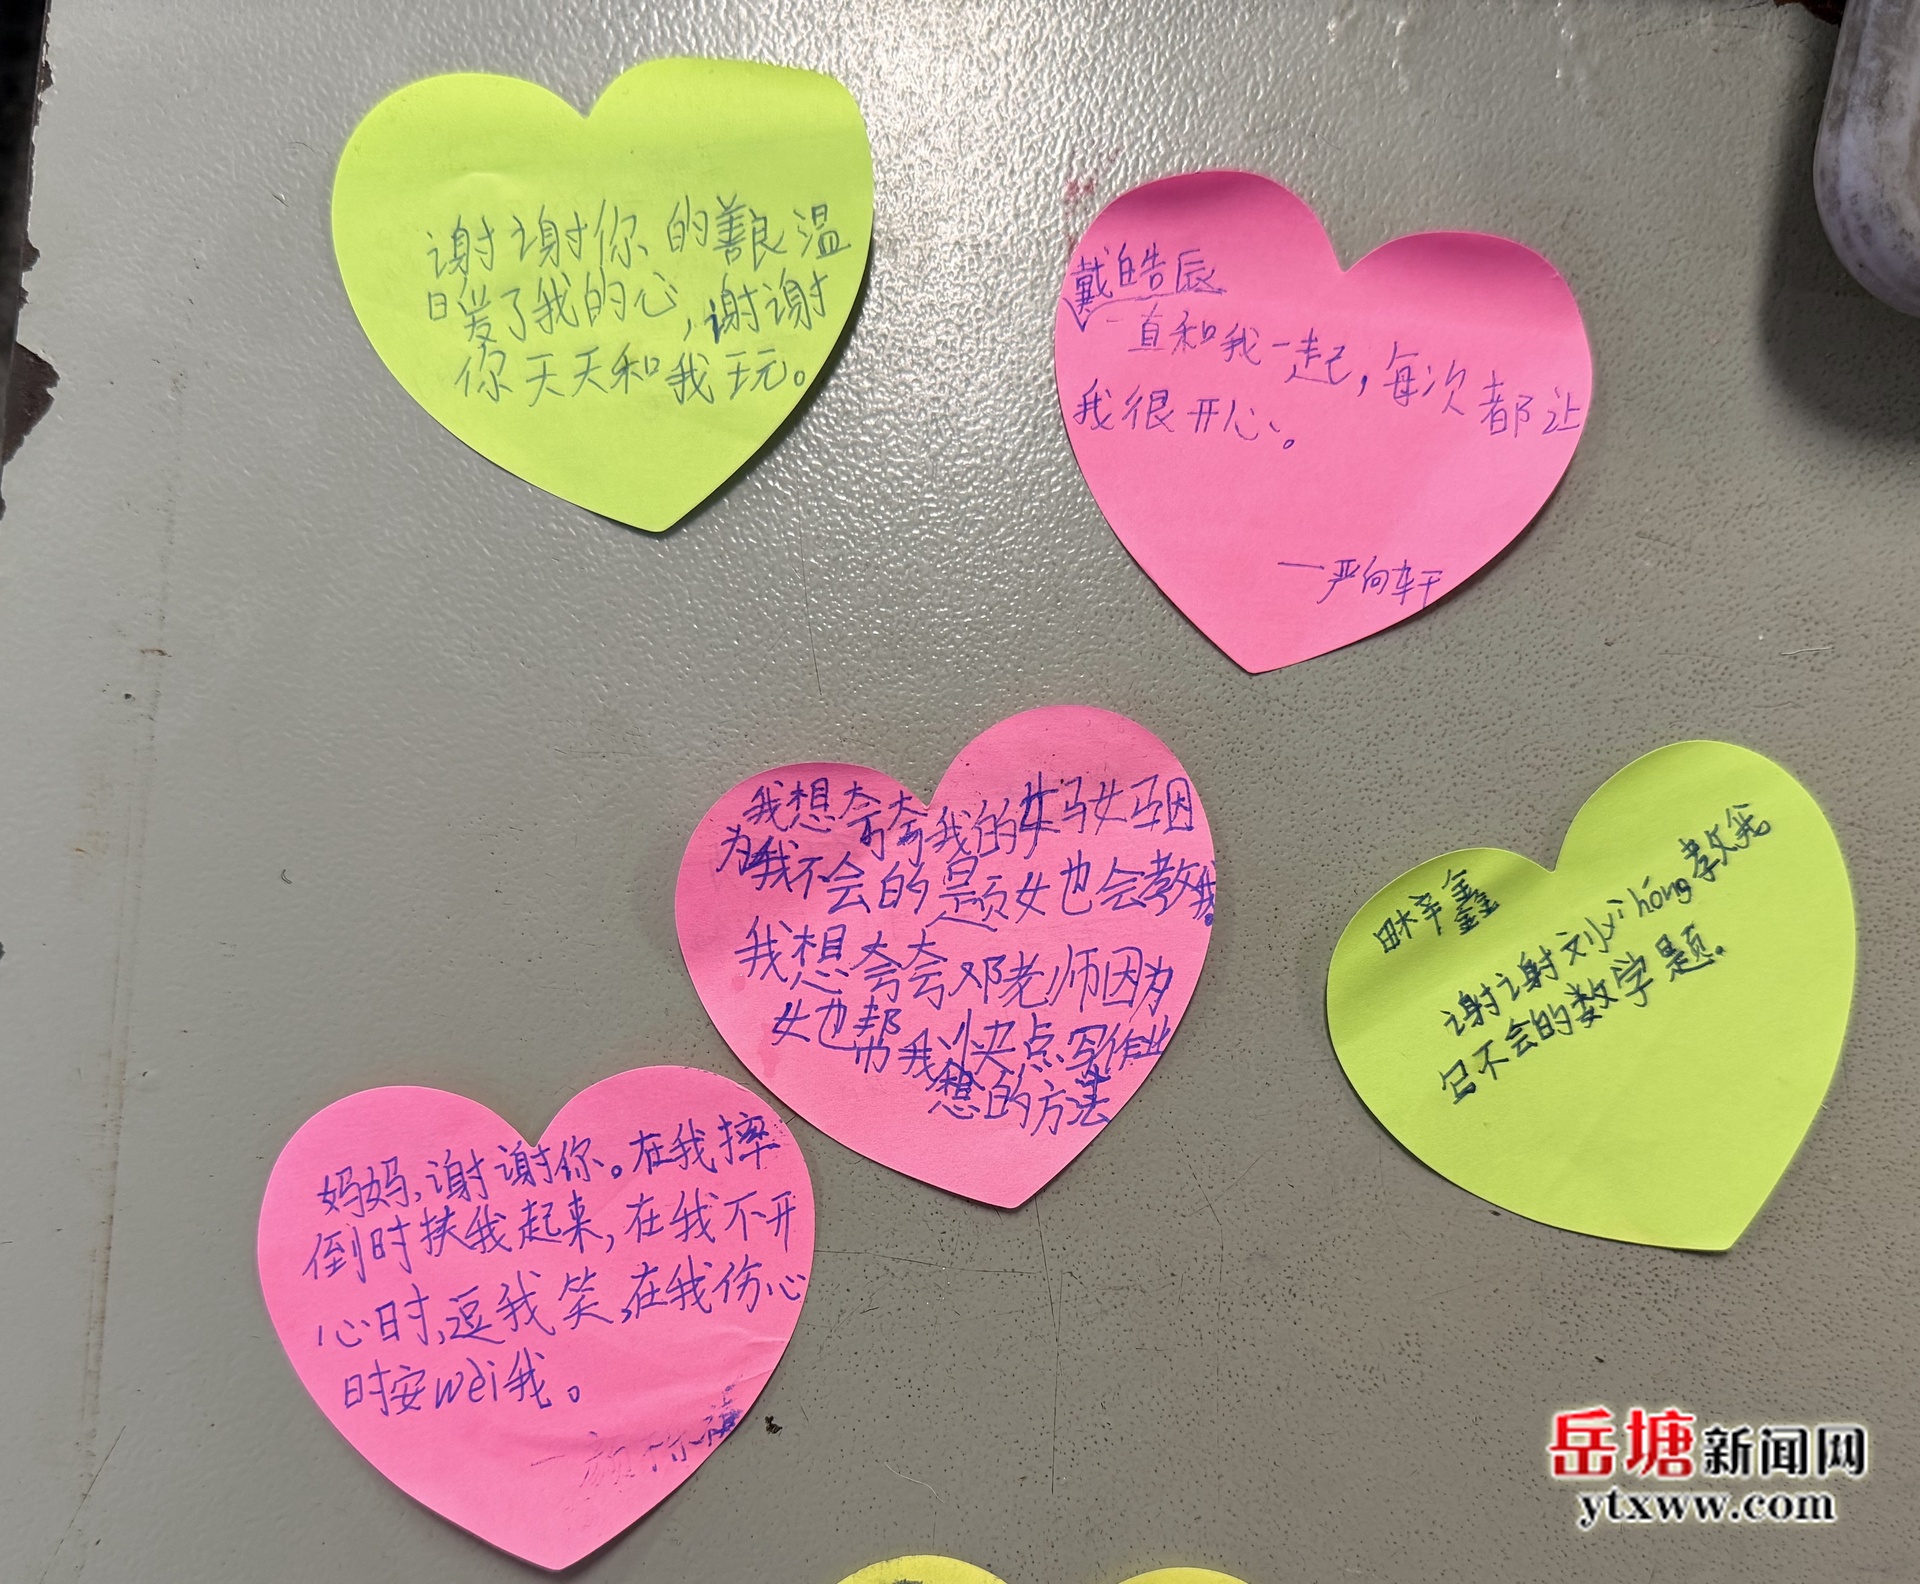 谢谢你的善良温
暖了我的心,谢谢
你天天和我玩。
戴皓辰
一直和我一起,每次都让
我很开心。
一严向轩
我想夸夸我的妈妈因
为我不会的题她会教我。
我想夸夸邓老师因为
她帮我快点写作业
想的方法
鑫
谢谢刘yi hóng教我
不会的数学题。
妈妈,谢谢你。在我摔
倒时扶我起来,在我不开
心时,逗我笑,在我伤心
时安wèi我。
岳塘新闻网
ytxww.com